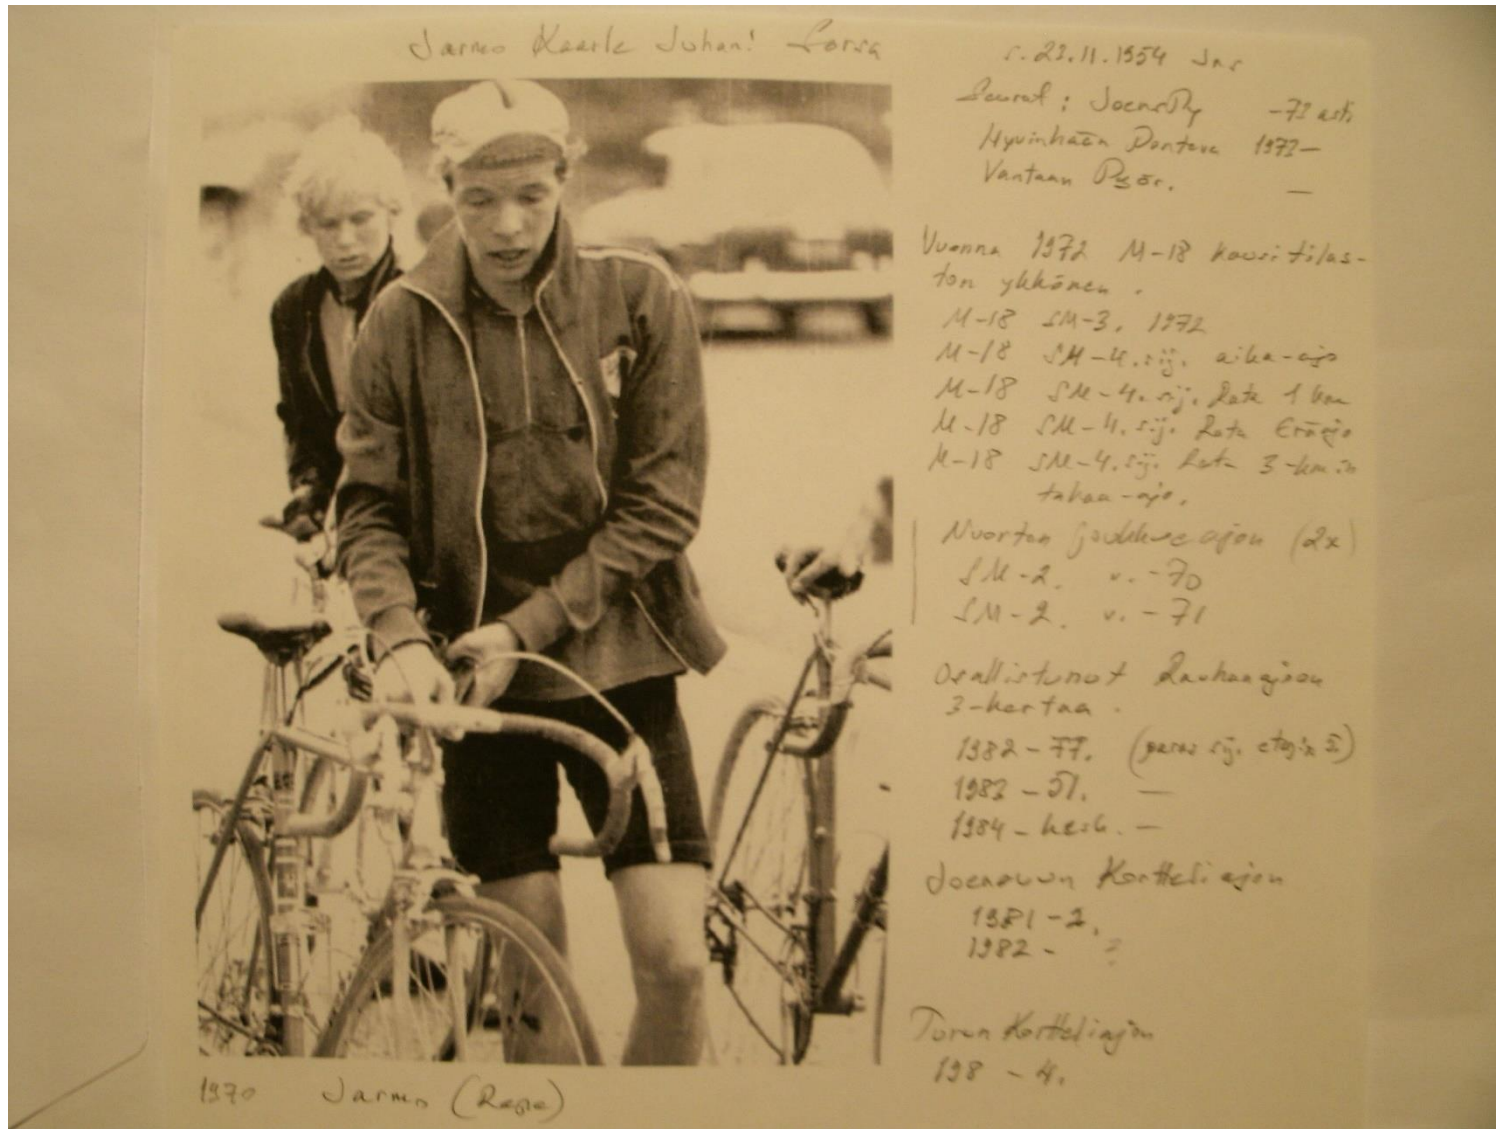 Jarmo Kaarle Juhani Sorsa
s. 23.11.1954 Jns
Seurat : JoensPy -73 asti
Hyvinkään Ponteva 1973-
Vantaan Pyör. —
Vuonna 1972 M-18 kausitilas-
ton ykkönen.
M-18 SM-3. 1972
M-18 SM-4. sij. aika-ajo
M-18 SM-4. sij. Rata 1 km
M-18 SM-4. sij. Rata Eräajo
M-18 SM-4. sij. Rata 3-km:n
takaa-ajo.
Nuorten joukkueajon (2x)
SM-2. v. -70
SM-2. v. -71
Osallistunut Rauhanajoon
3-kertaa.
1982 - 77. (paras sij. 5)
1983 - 51. —
1984 - kesk. —
Joensuun Korttelinajon
1981 - 2.
1982 - ?
Turun Korttelinajon
198 - 4.
1970 Jarmo (Repe)